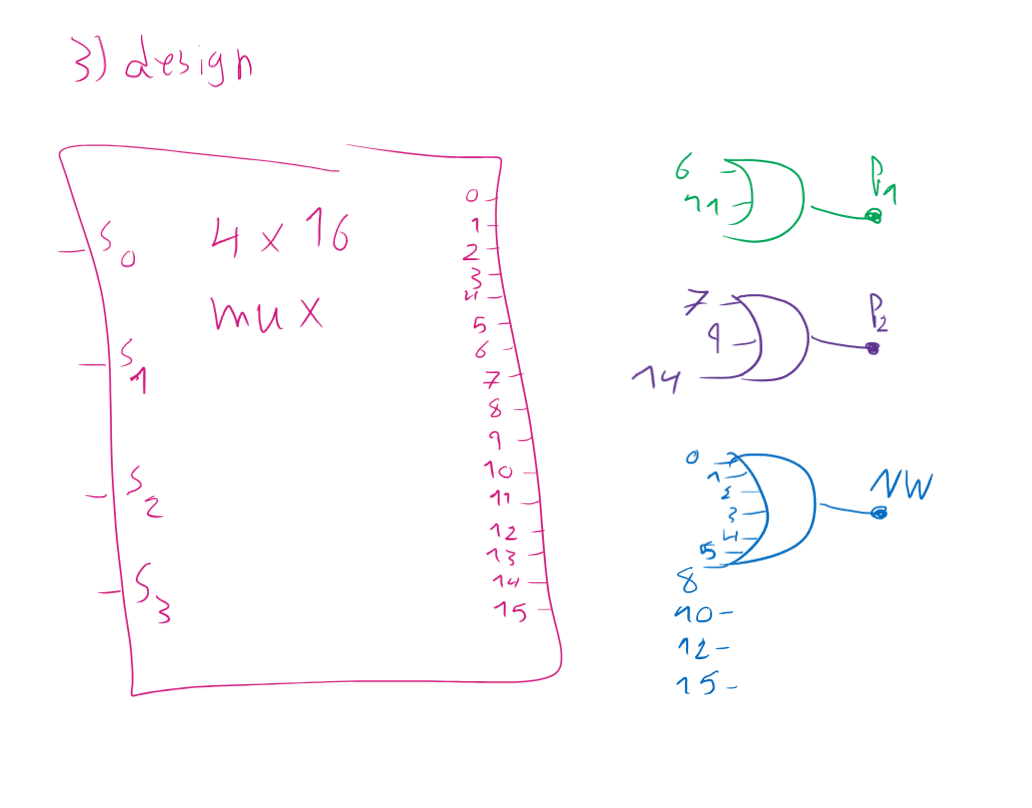 3) design
4 x 16
mux
S0
S1
S2
S3
0
1
2
3
4
5
6
7
8
9
10
11
12
13
14
15
6
11
P1
7
9
14
P2
0
1
2
3
4
5
8
10
12
15
NW